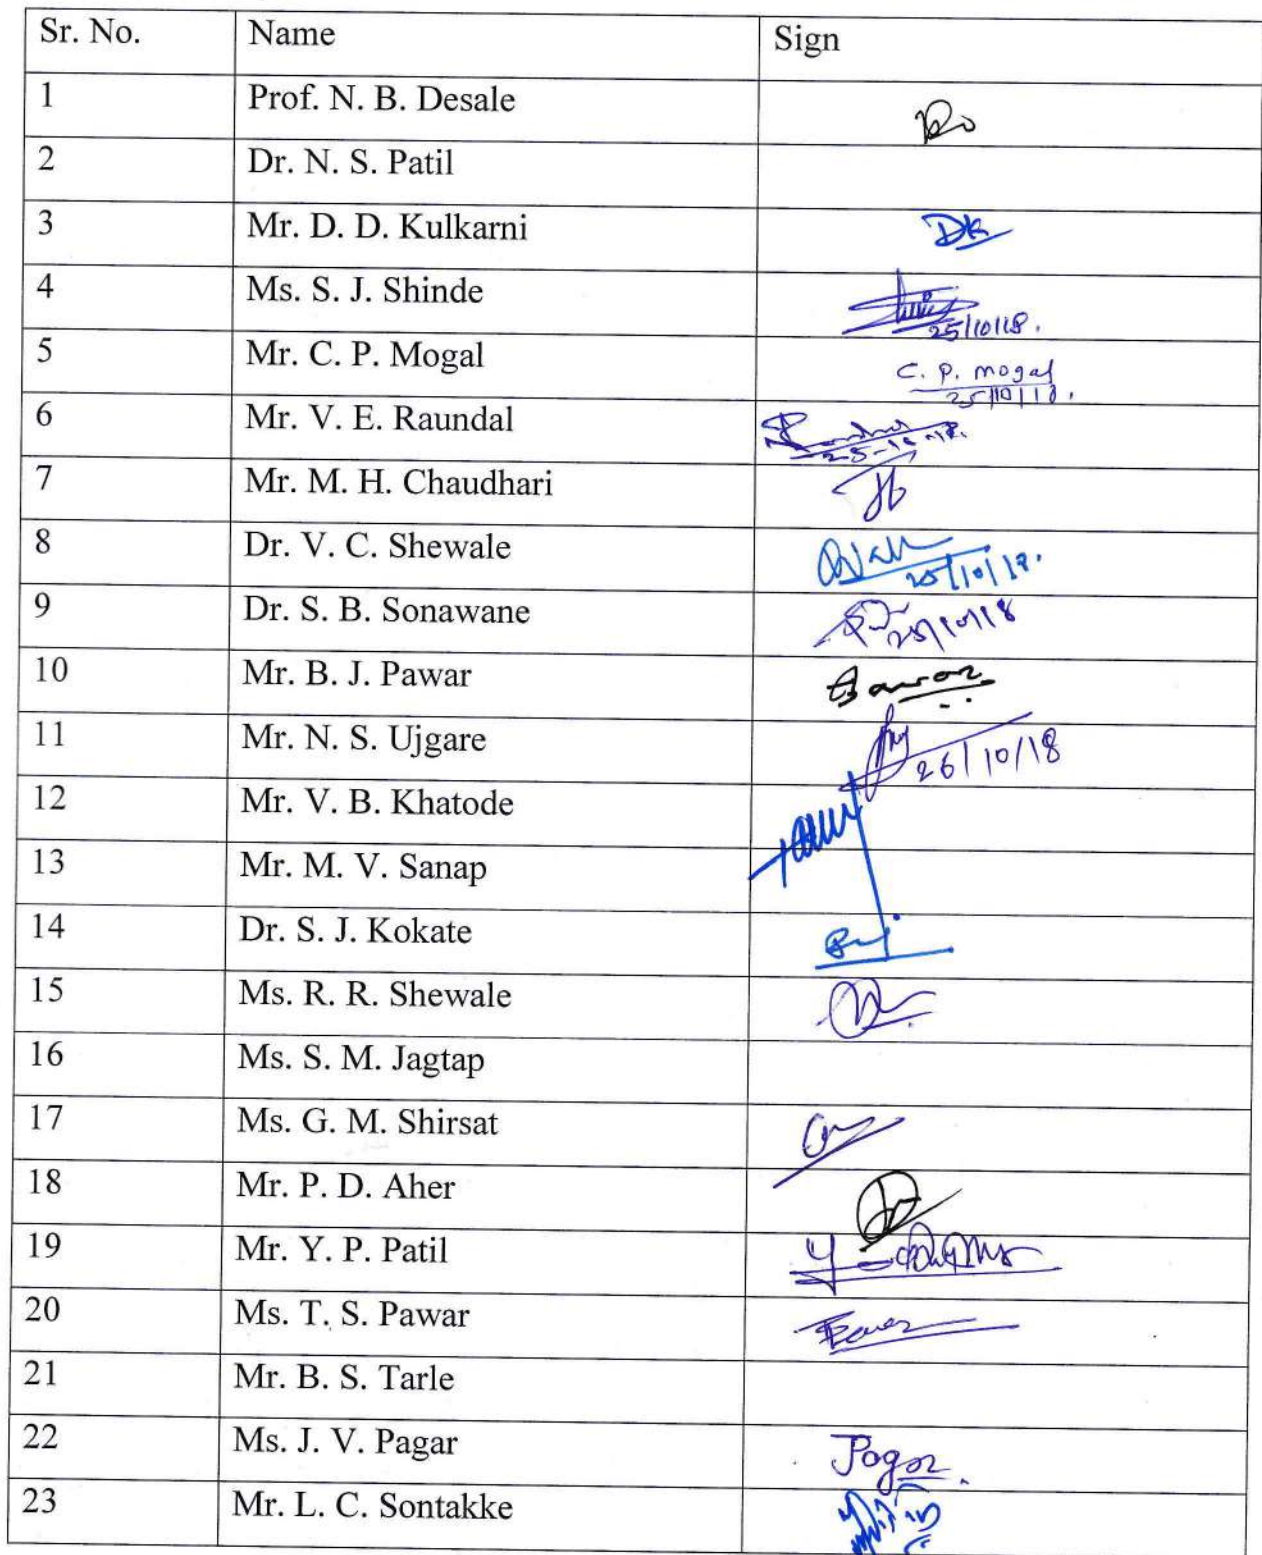 Sr. No. Name Sign
1 Prof. N. B. Desale
2 Dr. N. S. Patil
3 Mr. D. D. Kulkarni DK
4 Ms. S. J. Shinde 25/10/18.
5 Mr. C. P. Mogal C. P. mogal
25/10/18.
6 Mr. V. E. Raundal 25-10-18.
7 Mr. M. H. Chaudhari
8 Dr. V. C. Shewale 25/10/18.
9 Dr. S. B. Sonawane 25/10/18
10 Mr. B. J. Pawar
11 Mr. N. S. Ujgare 26/10/18
12 Mr. V. B. Khatode
13 Mr. M. V. Sanap
14 Dr. S. J. Kokate
15 Ms. R. R. Shewale
16 Ms. S. M. Jagtap
17 Ms. G. M. Shirsat
18 Mr. P. D. Aher
19 Mr. Y. P. Patil
20 Ms. T. S. Pawar
21 Mr. B. S. Tarle
22 Ms. J. V. Pagar Pagar
23 Mr. L. C. Sontakke